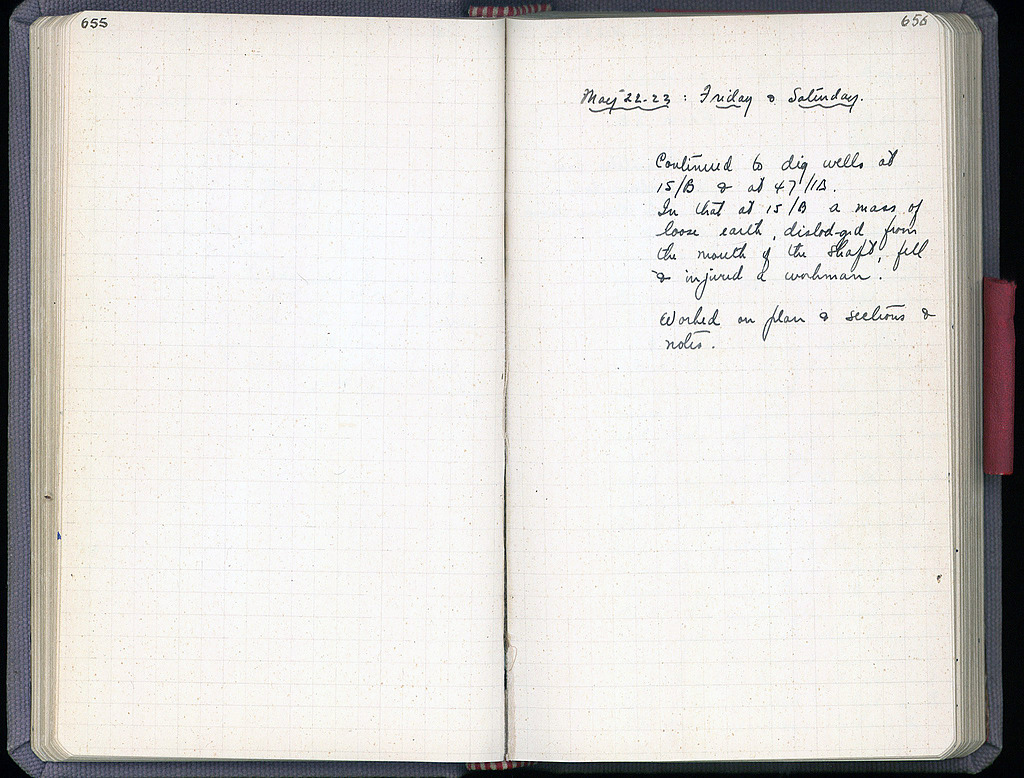 655
656
May 22-23 : Friday & Saturday.
Continued to dig wells at
15/B & at 47/1B.
In that at 15/B a mass of
loose earth, dislodged from
the mouth of the shaft, fell
& injured a workman.
Worked on plan & sections &
notes.